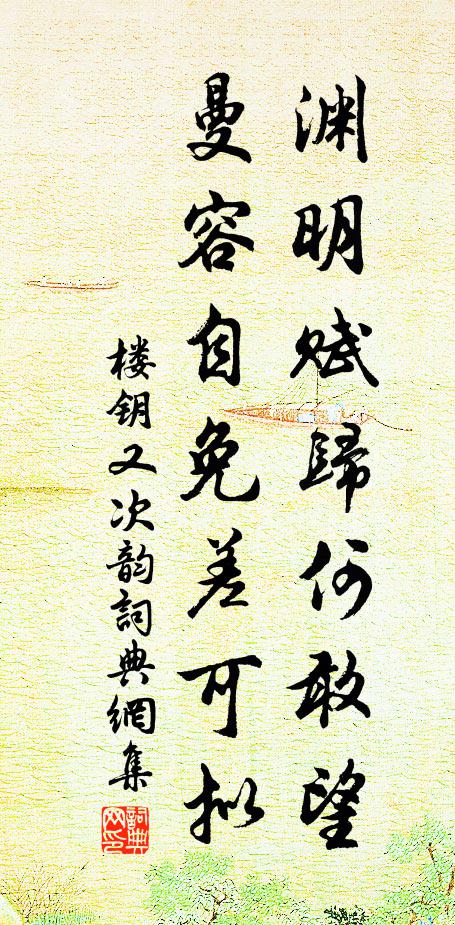 渊明赋歸何敢望
曼容自免差可拟
楼钥又次韵詞典網集
詞典网印